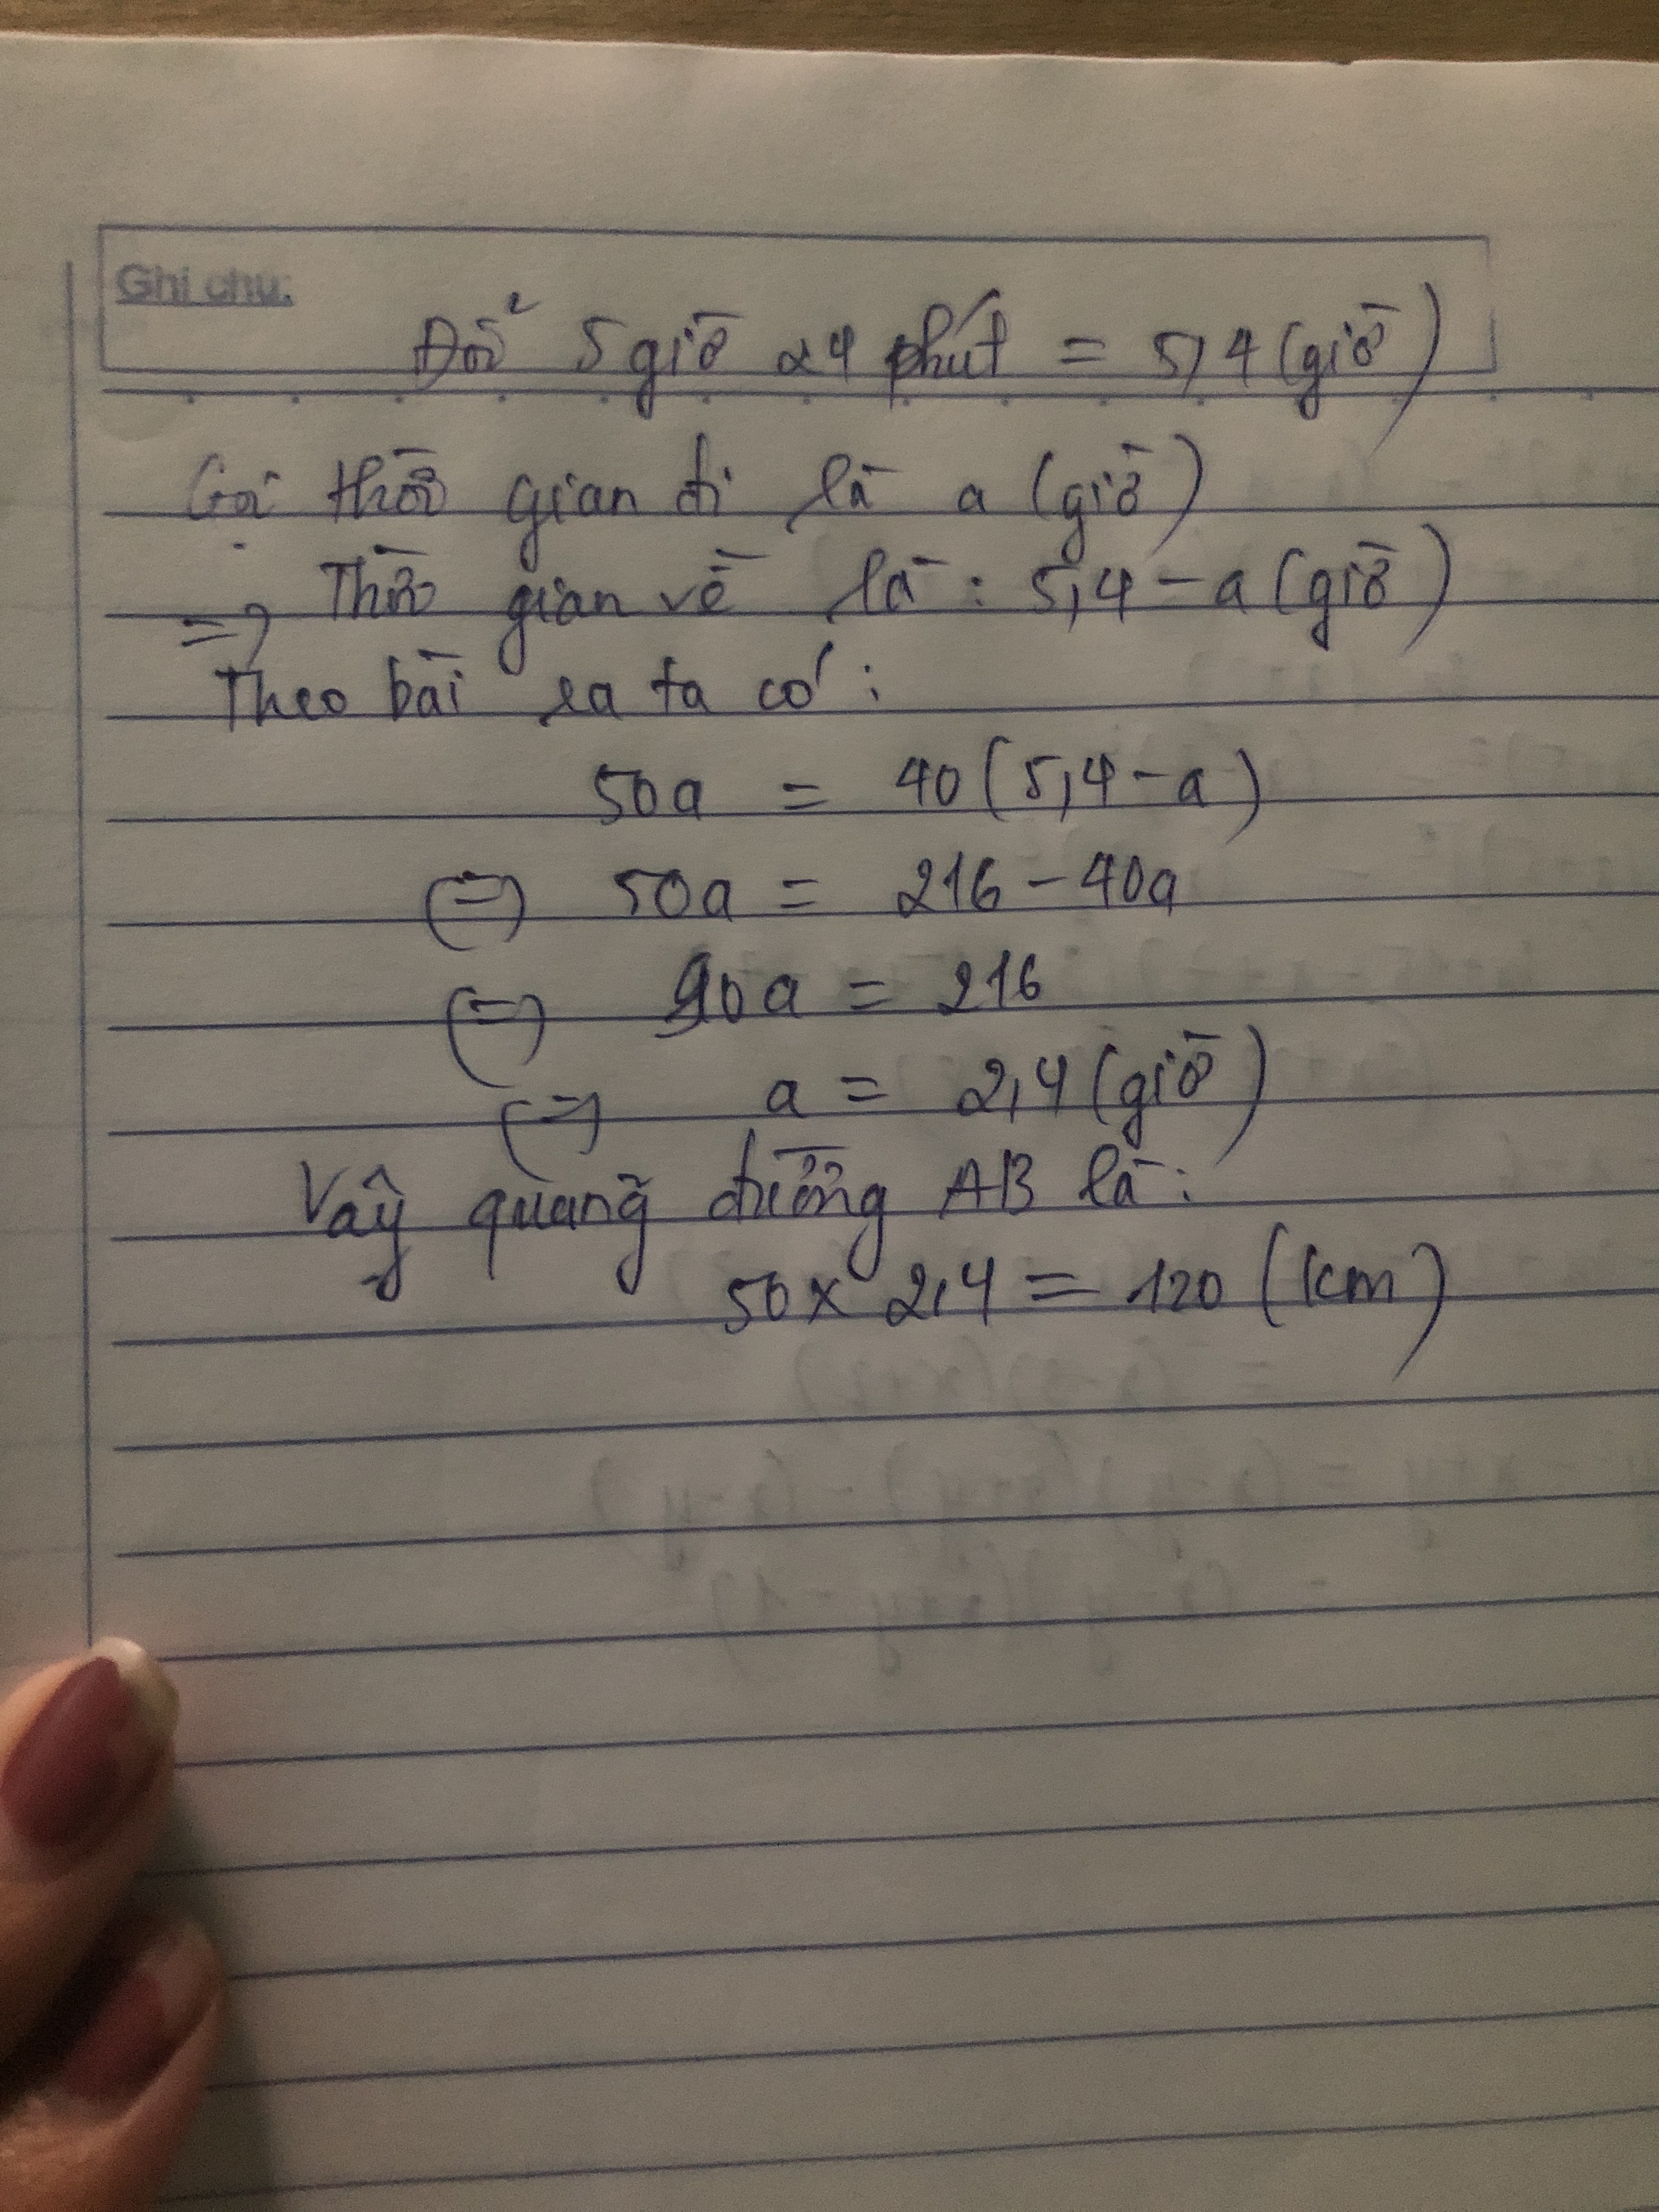 Ghi chú:
Đổi 5 giờ 24 phút = 5,4 (giờ)
Gọi thời gian đi là a (giờ)
=> Thời gian về là : 5,4 - a (giờ)
Theo bài ra ta có :
50a = 40 ( 5,4 - a )
(=) 50a = 216 - 40a
(=) 90a = 216
(=) a = 2,4 (giờ)
Vậy quãng đường AB là :
50 x 2,4 = 120 (km)